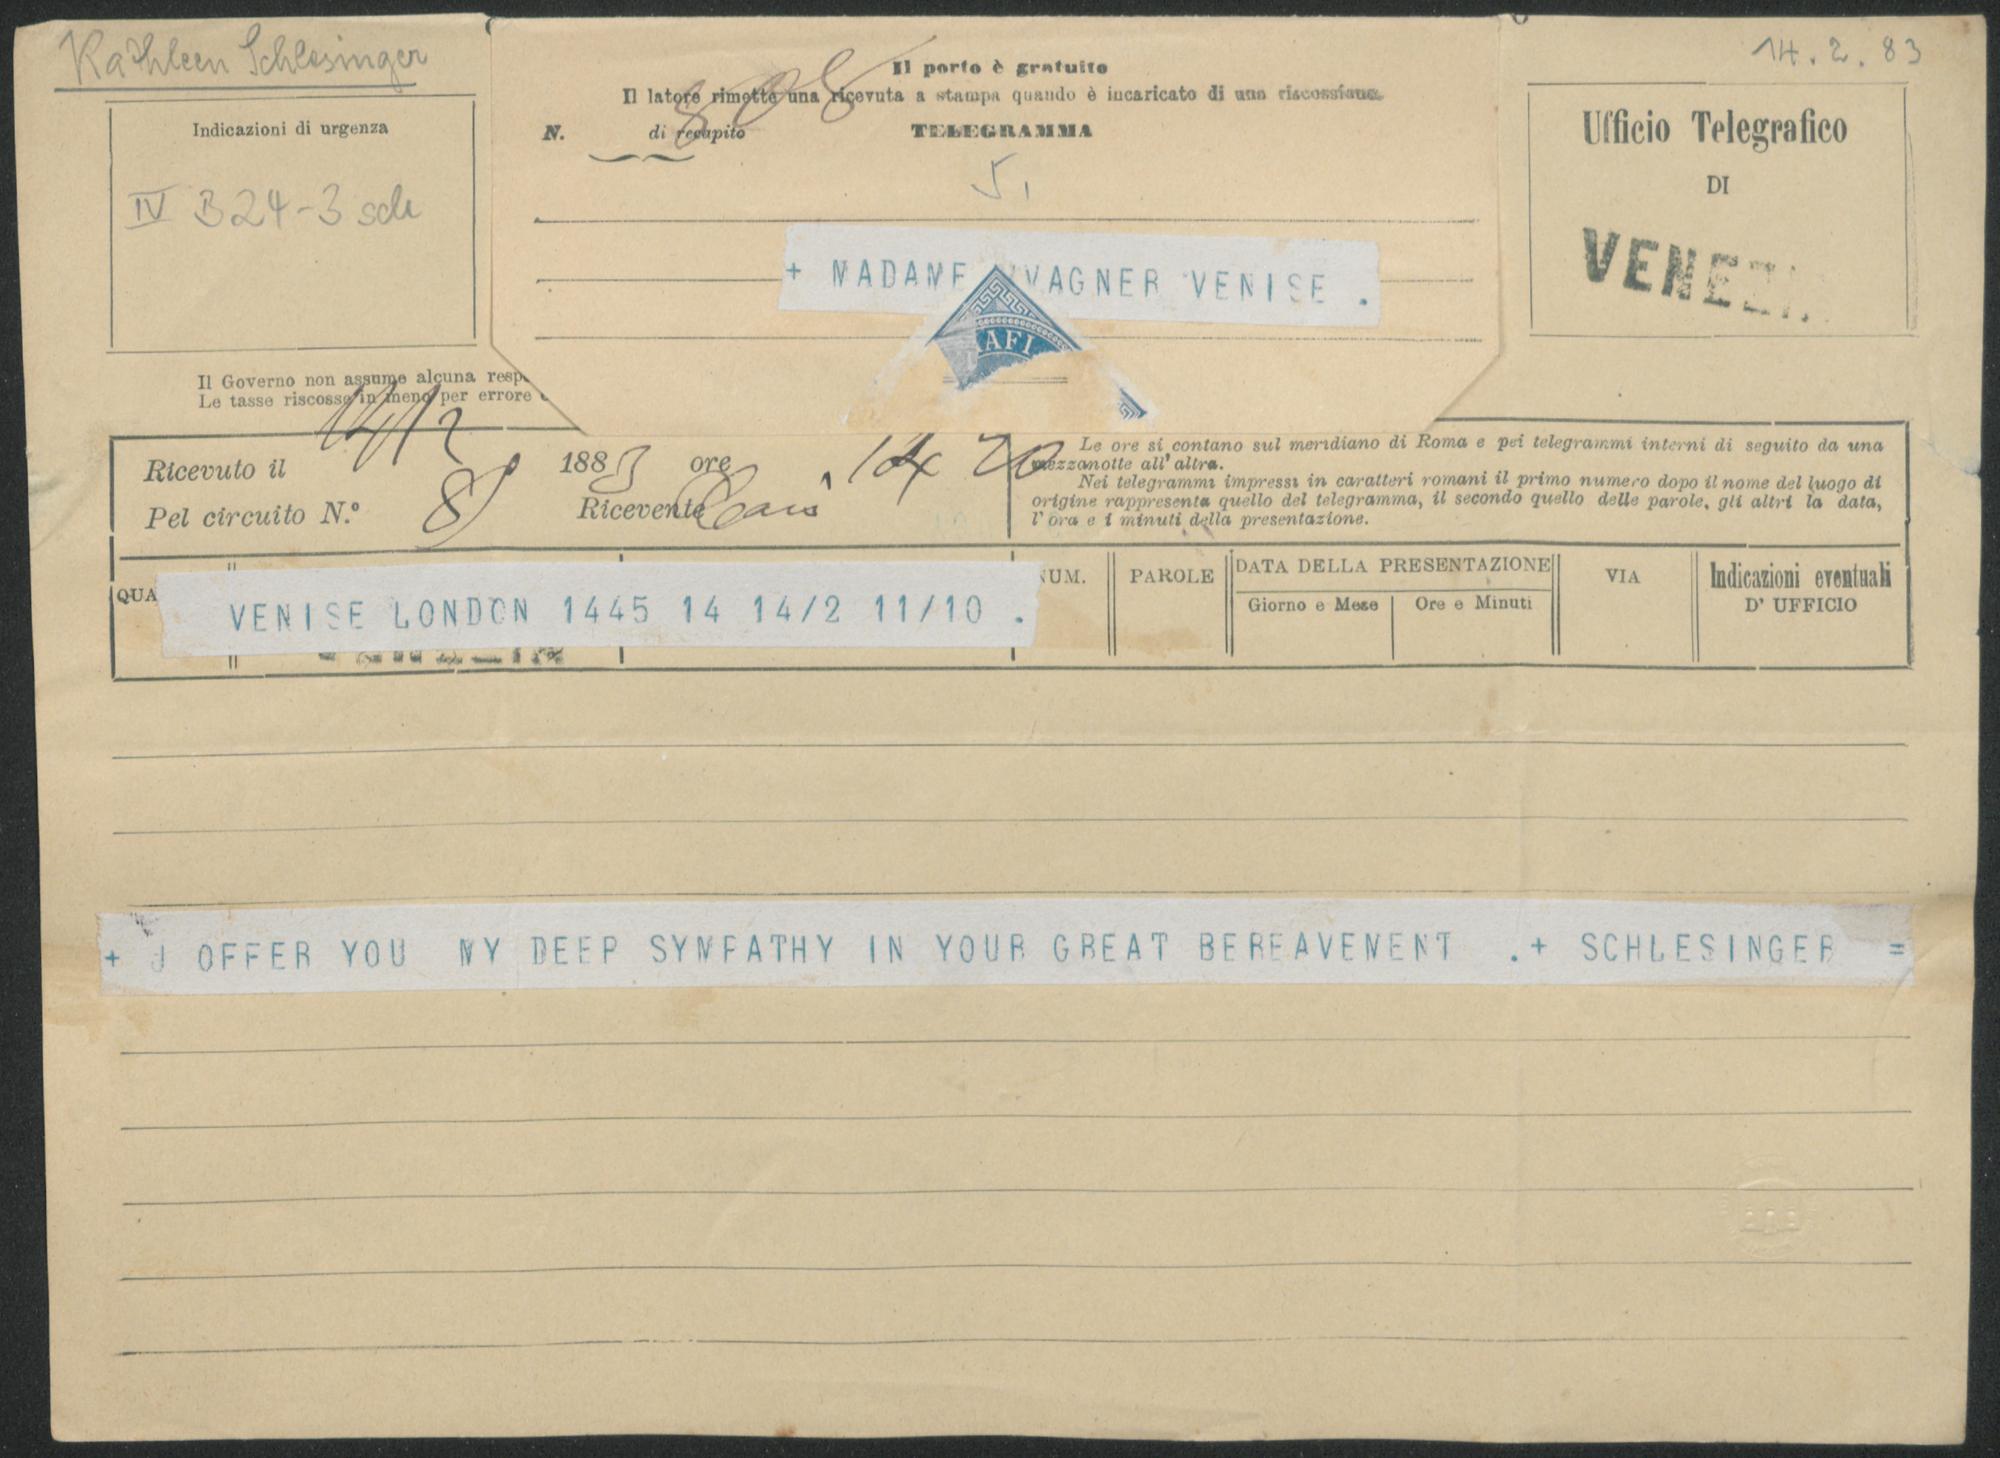 Kathleen Schlesinger
14.2.83
Indicazioni di urgenza
IV B 24-3 sch
Il porto è gratuito
Il latore rimette una ricevuta a stampa quando è incaricato di una riscossione.
N. di recapito TELEGRAMMA
+ MADAME WAGNER VENISE .
AFI
Ufficio Telegrafico
DI
VENEZI
Il Governo non assume alcuna resp
Le tasse riscosse in meno per errore
Ricevuto il 14/2 1883 ore 14 20
Pel circuito N.° 8 Ricevente
Le ore si contano sul meridiano di Roma e pei telegrammi interni di seguito da una
mezzanotte all'altra.
Nei telegrammi impressi in caratteri romani il primo numero dopo il nome del luogo di
origine rappresenta quello del telegramma, il secondo quello delle parole, gli altri la data,
l'ora e i minuti della presentazione.
QUA
VENISE LONDON 1445 14 14/2 11/10 .
NUM. PAROLE DATA DELLA PRESENTAZIONE VIA Indicazioni eventuali
Giorno e Mese Ore e Minuti D' UFFICIO
+ J OFFER YOU MY DEEP SYMPATHY IN YOUR GREAT BEREAVEMENT .+ SCHLESINGER =